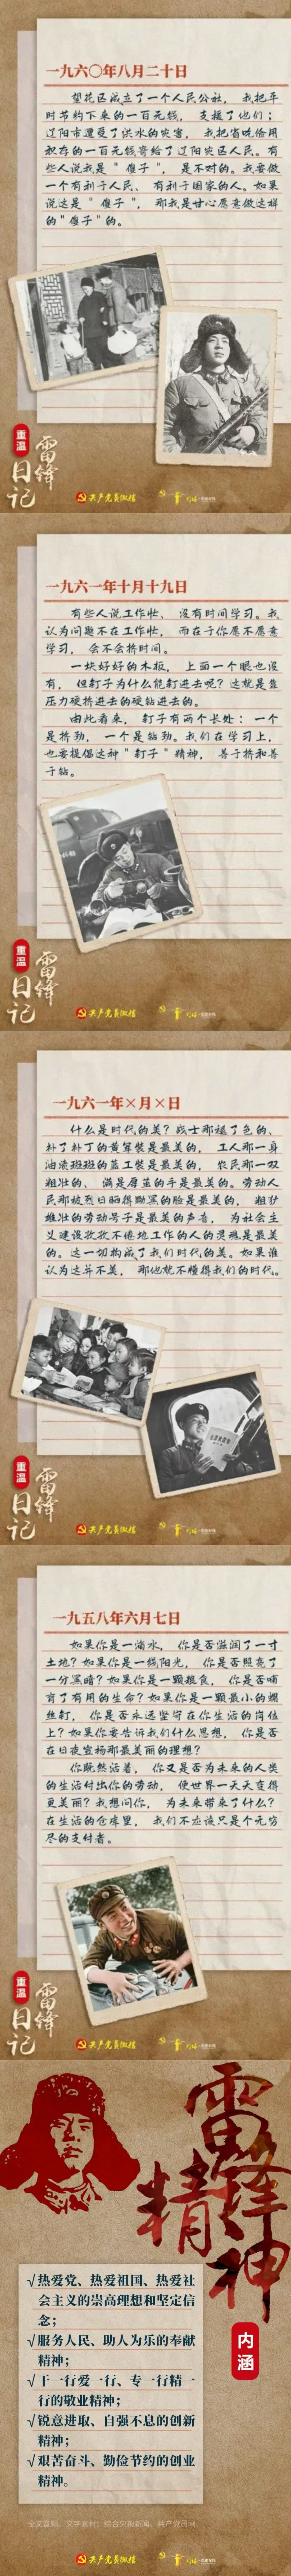 一九六〇年八月二十日
望花区成立了一个人民公社，我把平
时节约下来的一百元钱，支援了他们；
辽阳市遭受了洪水的灾害，我把省吃俭用
积存的一百元钱寄给了辽阳灾区人民。有
些人说我是“傻子”，是不对的。我要做
一个有利于人民、有利于国家的人。如果
说这是“傻子”，那我是甘心愿意做这样
的“傻子”的。
重温
雷锋
日记
共产党员微信
一九六一年十月十九日
有些人说工作忙、没有时间学习。我
认为问题不在工作忙，而在于你愿不愿意
学习，会不会挤时间。
一块好好的木板，上面一个眼也没
有，但钉子为什么能钉进去呢？这就是靠
压力硬挤进去的硬钻进去的。
由此看来，钉子有两个长处：一个
是挤劲，一个是钻劲。我们在学习上，
也要提倡这种“钉子”精神，善于挤和善
于钻。
重温
雷锋
日记
共产党员微信
一九六一年×月×日
什么是时代的美？战士那褪了色的、
补了补丁的黄军装是最美的，工人那一身
油渍斑斑的蓝工装是最美的，农民那一双
粗壮的、满是厚茧的手是最美的。劳动人
民那被烈日晒得黝黑的脸是最美的，粗犷
雄壮的劳动号子是最美的声音，为社会主
义建设孜孜不倦地工作的人的灵魂是最美
的。这一切构成了我们时代的美。如果谁
认为这并不美，那他就不懂得我们的时代。
重温
雷锋
日记
共产党员微信
一九五八年六月七日
如果你是一滴水，你是否滋润了一寸
土地？如果你是一线阳光，你是否照亮了
一分黑暗？如果你是一颗粮食，你是否哺
育了有用的生命？如果你是一颗最小的螺
丝钉，你是否永远坚守在你生活的岗位
上？如果你要告诉我们什么思想，你是否
在日夜宣扬那最美丽的理想？
你既然活着，你又是否为未来的人类
的生活付出你的劳动，使世界一天天变得
更美丽？我想问你，为未来带来了什么？
在生活的仓库里，我们不应该只是个无穷
尽的支付者。
重温
雷锋
日记
共产党员微信
雷锋
精神
内涵
√热爱党、热爱祖国、热爱社
会主义的崇高理想和坚定信
念；
√服务人民、助人为乐的奉献
精神；
√干一行爱一行、专一行精一
行的敬业精神；
√锐意进取、自强不息的创新
精神；
√艰苦奋斗、勤俭节约的创业
精神。
全文音频、文字素材：综合央视新闻、共产党员网
共产党员微信